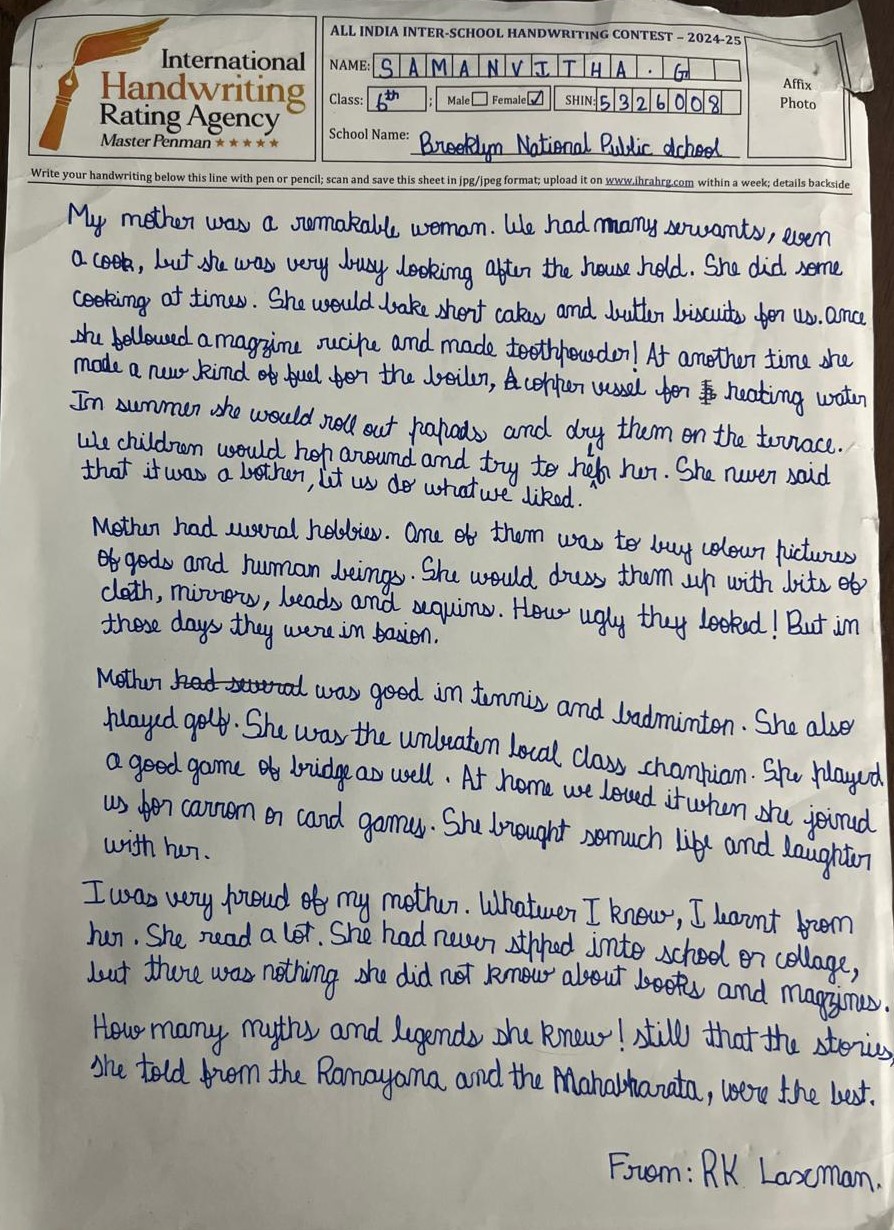 International
Handwriting
Rating Agency
Master Penman ★★★★★
ALL INDIA INTER-SCHOOL HANDWRITING CONTEST – 2024-25
NAME: SAMANVITHA . G
Class: 6th ; Male Female ✓ SHIN: 5326008
School Name: Brooklyn National Public School
Affix
Photo
Write your handwriting below this line with pen or pencil; scan and save this sheet in jpg/jpeg format; upload it on www.ihrahrg.com within a week; details backside
My mother was a remakable woman. We had many servants, even
a cook, but she was very busy looking after the house hold. She did some
cooking at tines. She would bake short cakes and butter biscuits for us. ance
she followed a magzine recipe and made toothpowder! At another time she
made a new kind of fuel for the boiler, A copper vessel for heating water
In summer she would roll out papads and dry them on the terrace.
We children would hop around and try to help her. She never said
that it was a bother, let us do what we liked.
Mother had everal hobbies. One of them was to buy colour pictures
of gods and human beings. She would dress them up with bits of
cloth, mirrors, beads and sequins. How ugly they looked! But in
those days they were in fasion.
Mother had several was good in tennis and badminton. She also
played golf. She was the unbeaten local class chanpian. She played
a good game of bridge as well. At home we loved it when she joined
us for carrom or card games. She brought somuch life and laughter
with her.
I was very proud of my mother. Whatever I know, I learnt from
her. She read a lot. She had never stpped into school or collage,
but there was nothing she did not know about books and magzines.
How many myths and legends she knew! still that the stories,
she told from the Ramayana and the Mahabharata, were the best.
From: RK Laxman.